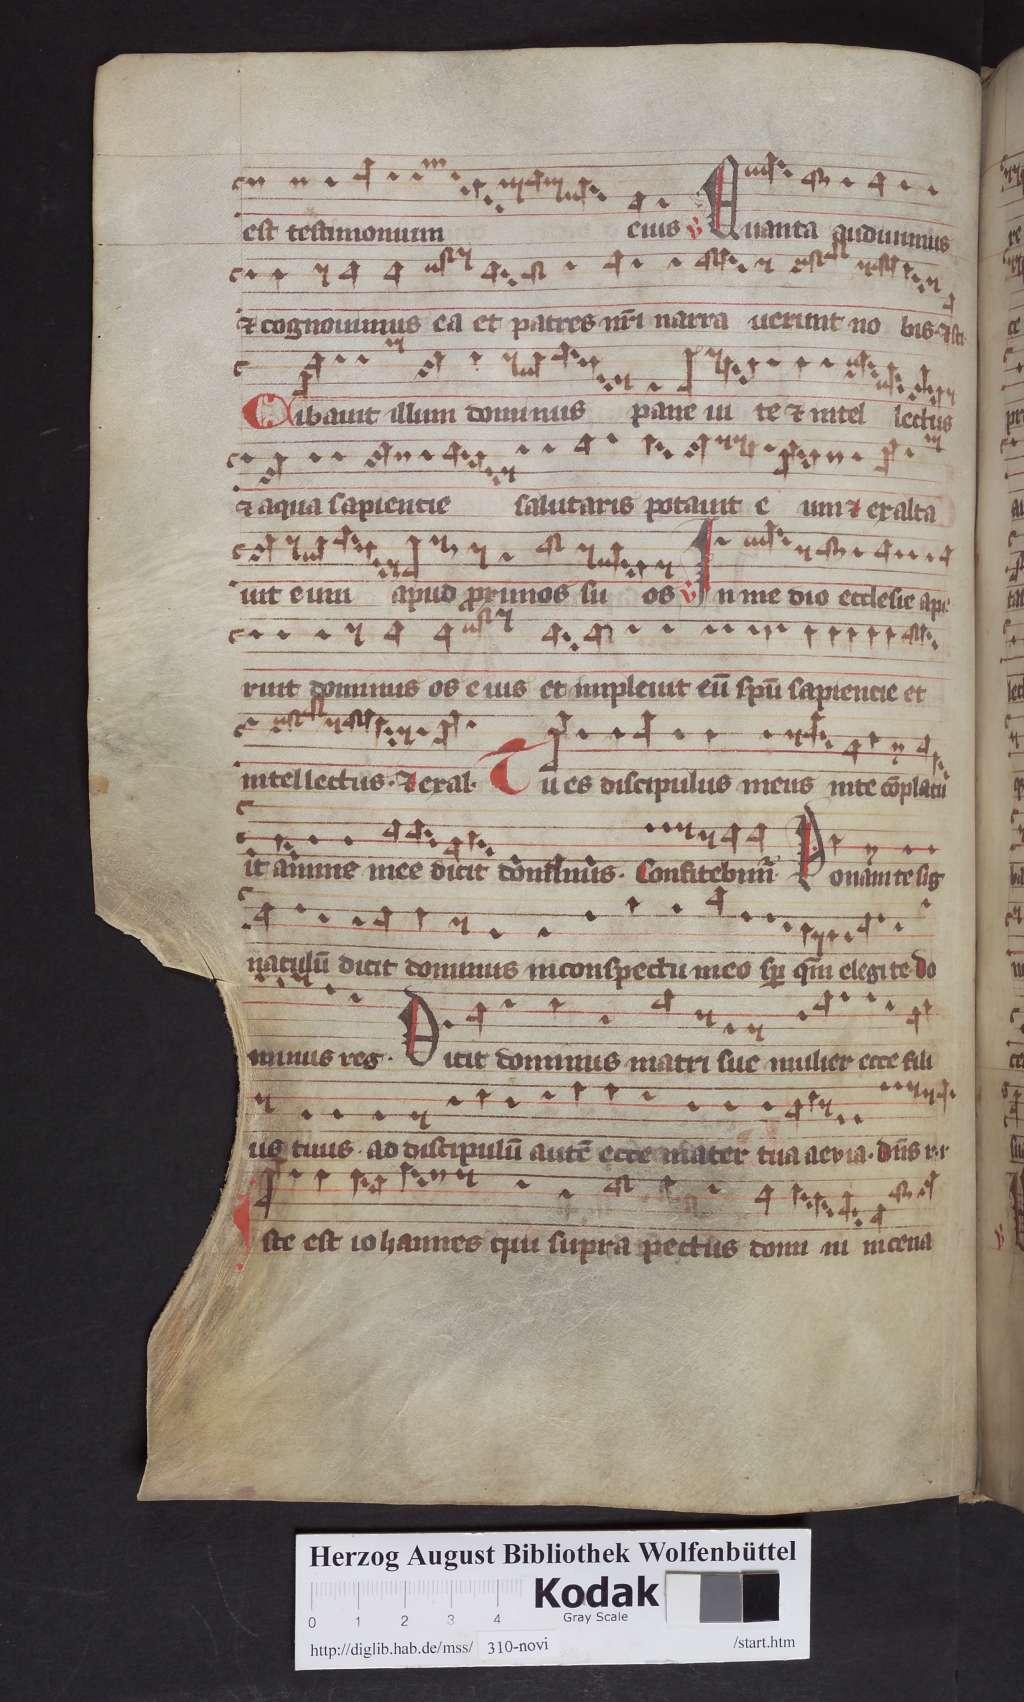 est testimonium eius v Quanta audiuimus
⁊ cognouimus ea et patres nr̄i narra uerunt no bis ⁊ sci
Cibauit illum dominus pane ui te ⁊ intel lectus
⁊ aqua sapientie salutaris potauit e um ⁊ exalta
uit eum apud proximos su os v In me dio ecclesie ape
ruit dominus os e ius et impleuit eū spū sapiencie et
intellectus · ⁊ exal· Tu es discipulus meus inte cōplacu
it anime mee dicit dominus · Confitebim̄ Ponam te sig
naculū dicit dominus inconspectu meo qm̄ elegi te do
minus reg · Dicit dominus matri sue mulier ecce fili
us tuus · ad discipulū autē ecce mater tua aevia · dn̄s
Iste est iohannes qui supra pectus domi ni incena
Herzog August Bibliothek Wolfenbüttel
0 1 2 3 4
Kodak
Gray Scale
http://diglib.hab.de/mss/ 310-novi /start.htm